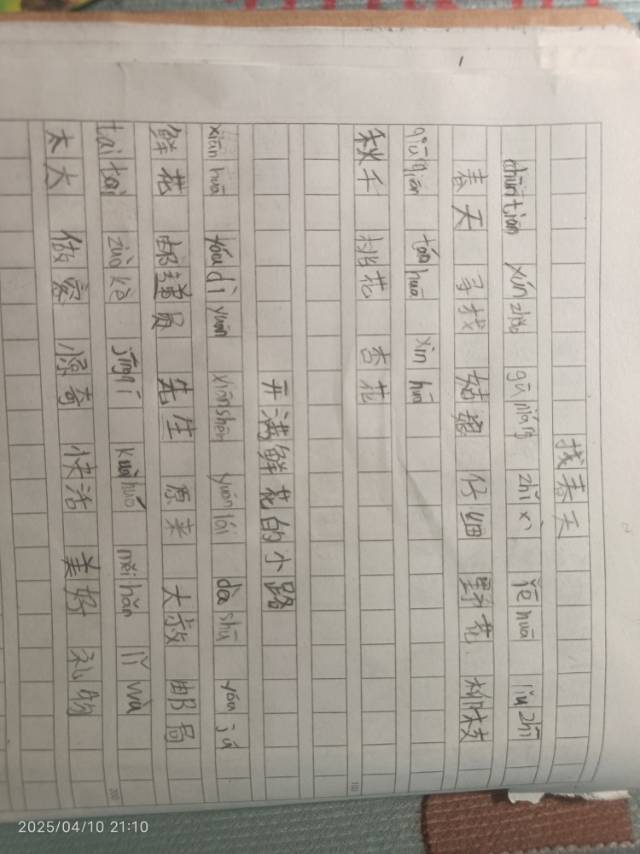 找春天
chūntiān xúnzhǎo gūniáng zhǐxì yěhuā liǔzhī
春天 寻找 姑娘 仔细 野花 柳枝
qiūqiān táohuā xìnhuā
秋千 桃花 杏花
开满鲜花的小路
xiānhuā yóudìyuán xiānshēn yuánlái dàshū yóujú
鲜花 邮递员 先生 原来 大叔 邮局
tàitai zuòkè jīngqí kuàihuó měihǎo lǐwù
太太 做客 惊奇 快活 美好 礼物
2025/04/10 21:10